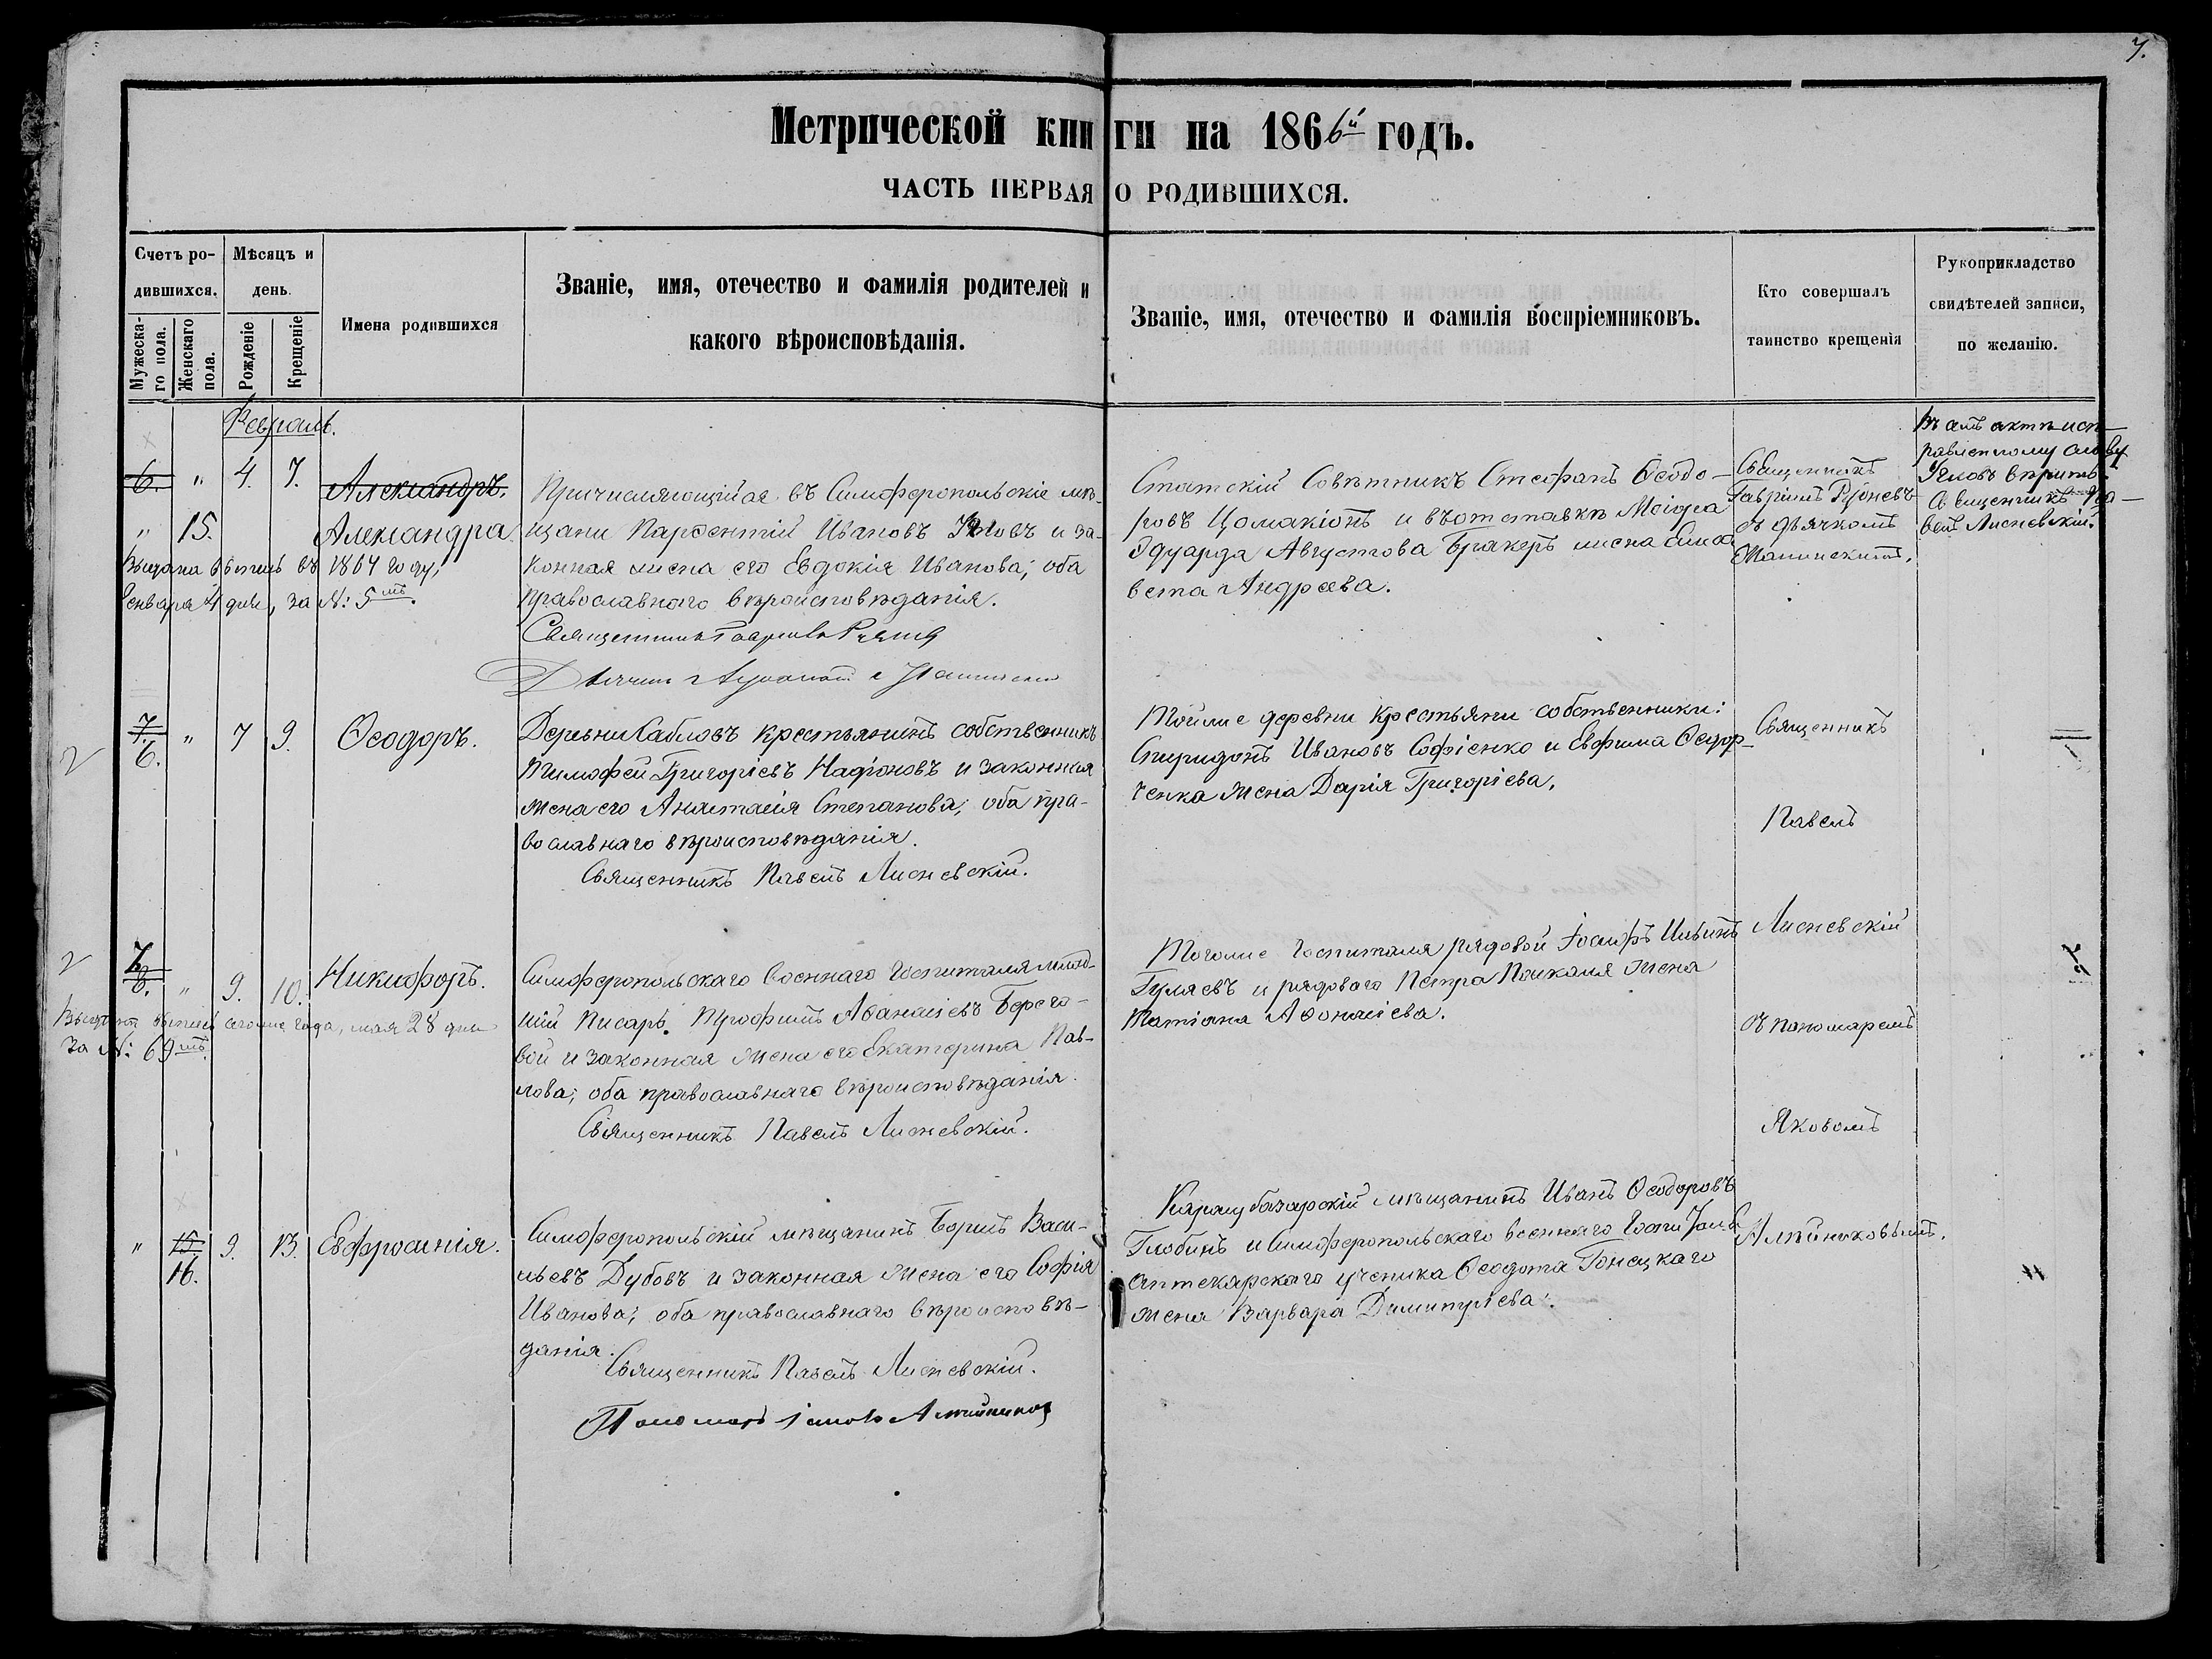 7.
Метрической книги на 1866й годъ.
ЧАСТЬ ПЕРВАЯ О РОДИВШИХСЯ.
Счетъ ро-
дившихся.
Мужеска-
го пола.
Женскаго
пола.
Мѣсяцъ и
день.
Рожденіе
Крещеніе
Имена родившихся
Званіе, имя, отечество и фамилія родителей и
какого вѣроисповѣданія.
Званіе, имя, отечество и фамилія воспріемниковъ.
Кто совершалъ
таинство крещенія
Рукоприкладство
свидѣтелей записи,
по желанію.
Февраль.
6. " 4. 7. Александръ.
" 15. Александра.
Выдана въ 1867 году,
Генваря 4 дня, за №: 5мъ.
Причисляющійся въ Симферопольскіе мѣ-
щани Парѳентій Ивановъ и за-
конная жена его Евдокія Иванова; оба
православнаго вѣроисповѣданія.
Священникъ Гавріилъ
Дьячекъ
Статскій Совѣтникъ Стефанъ Ѳеодо-
ровъ Цомакіонъ и въ отставкѣ Маіора
Эдуарда Августова Бракеръ жена Елиса
вета Андреева.
Священникъ
Гавріилъ
съ дьячкомъ
Въ семъ актѣ исп-
равленному слову
вѣрить.
Священникъ Па-
велъ Лисневскій.
2
7.
6. " 7 9. Ѳеодоръ.
Деревни Сабловъ крестьянинъ собственникъ
Тимофей Григоріевъ и законная
жена его Анастасія Степанова; оба пра-
вославнаго вѣроисповѣданія.
Священникъ Павелъ Лисневскій.
Тойже деревни крестьяни собственники:
Спиридонъ Ивановъ Софіенко и Евфима Ѳедор-
ченка жена Дарія Григоріева.
Священникъ
Павелъ
Лисневскій
2
7.
8. " 9. 10. Никифоръ.
Выдана сегоже года, мая 28 дня
за №: 69мъ.
Симферопольскаго Военнаго Госпиталя млад-
шій Писарь Трофимъ Аѳанасіевъ Берего-
вой и законная жена его Екатерина Пав-
лова; оба православнаго вѣроисповѣданія.
Священникъ Павелъ Лисневскій.
Тогоже Госпиталя рядовой Іосифъ Ильинъ
Гуляевъ и рядоваго Петра жена
Татіана Аѳонасіева.
съ пономаремъ
Яковомъ
" 15. 9. 13. Евфросинія.
16.
Симферопольскій мѣщанинъ Борисъ Васи-
льевъ Дубовъ и законная жена его Софія
Иванова; оба православнаго вѣроисповѣ-
данія.
Священникъ Павелъ Лисневскій.
Пономарь Іаковъ Алейников
Карасубазарскій мѣщанинъ Иванъ Ѳеодоровъ
Глобинъ и Симферопольскаго военнаго Госпиталя
аптекарскаго ученика Ѳеодота Гонецкаго
жена Варвара Димитріева.
Алейниковымъ.